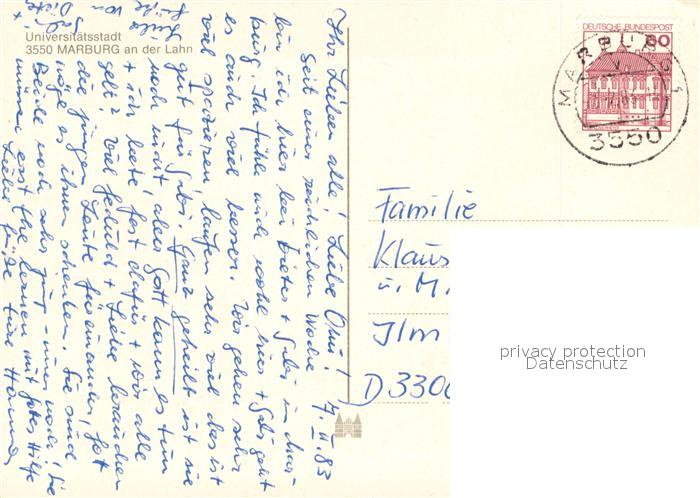 Universitätsstadt
3550 MARBURG an der Lahn
Ihr Lieben alle! Liebe Omi!
7. II. 83
Seit einer reichlichen Woche
bin ich hier bei Dieter + Gabi in Mar-
burg. Ich fühle mich wohl hier + Gabi geht
es auch viel besser. Wir gehen sehr
viel spazieren, laufen sehr viel das ist
gut für Gabi. Ganz geheilt ist sie
noch nicht aber Gott kann es tun
+ ich bete fest dafür + wir alle
Geduld + Liebe brauchen
die jungen Leute füreinander, Gott
möge es ihnen schenken. Sie sind
Beide noch sehr jung - unerfahren! Sie
müssen erst Ehe lernen mit Gottes Hilfe
Liebe Grüße Eure Hanna
Liebe
Grüße von
Gabi
Dieter +
DEUTSCHE BUNDESPOST
60
MARBURG
3550
Familie
Klaus
u. M.
Ilm
D 3300
privacy protection
Datenschutz